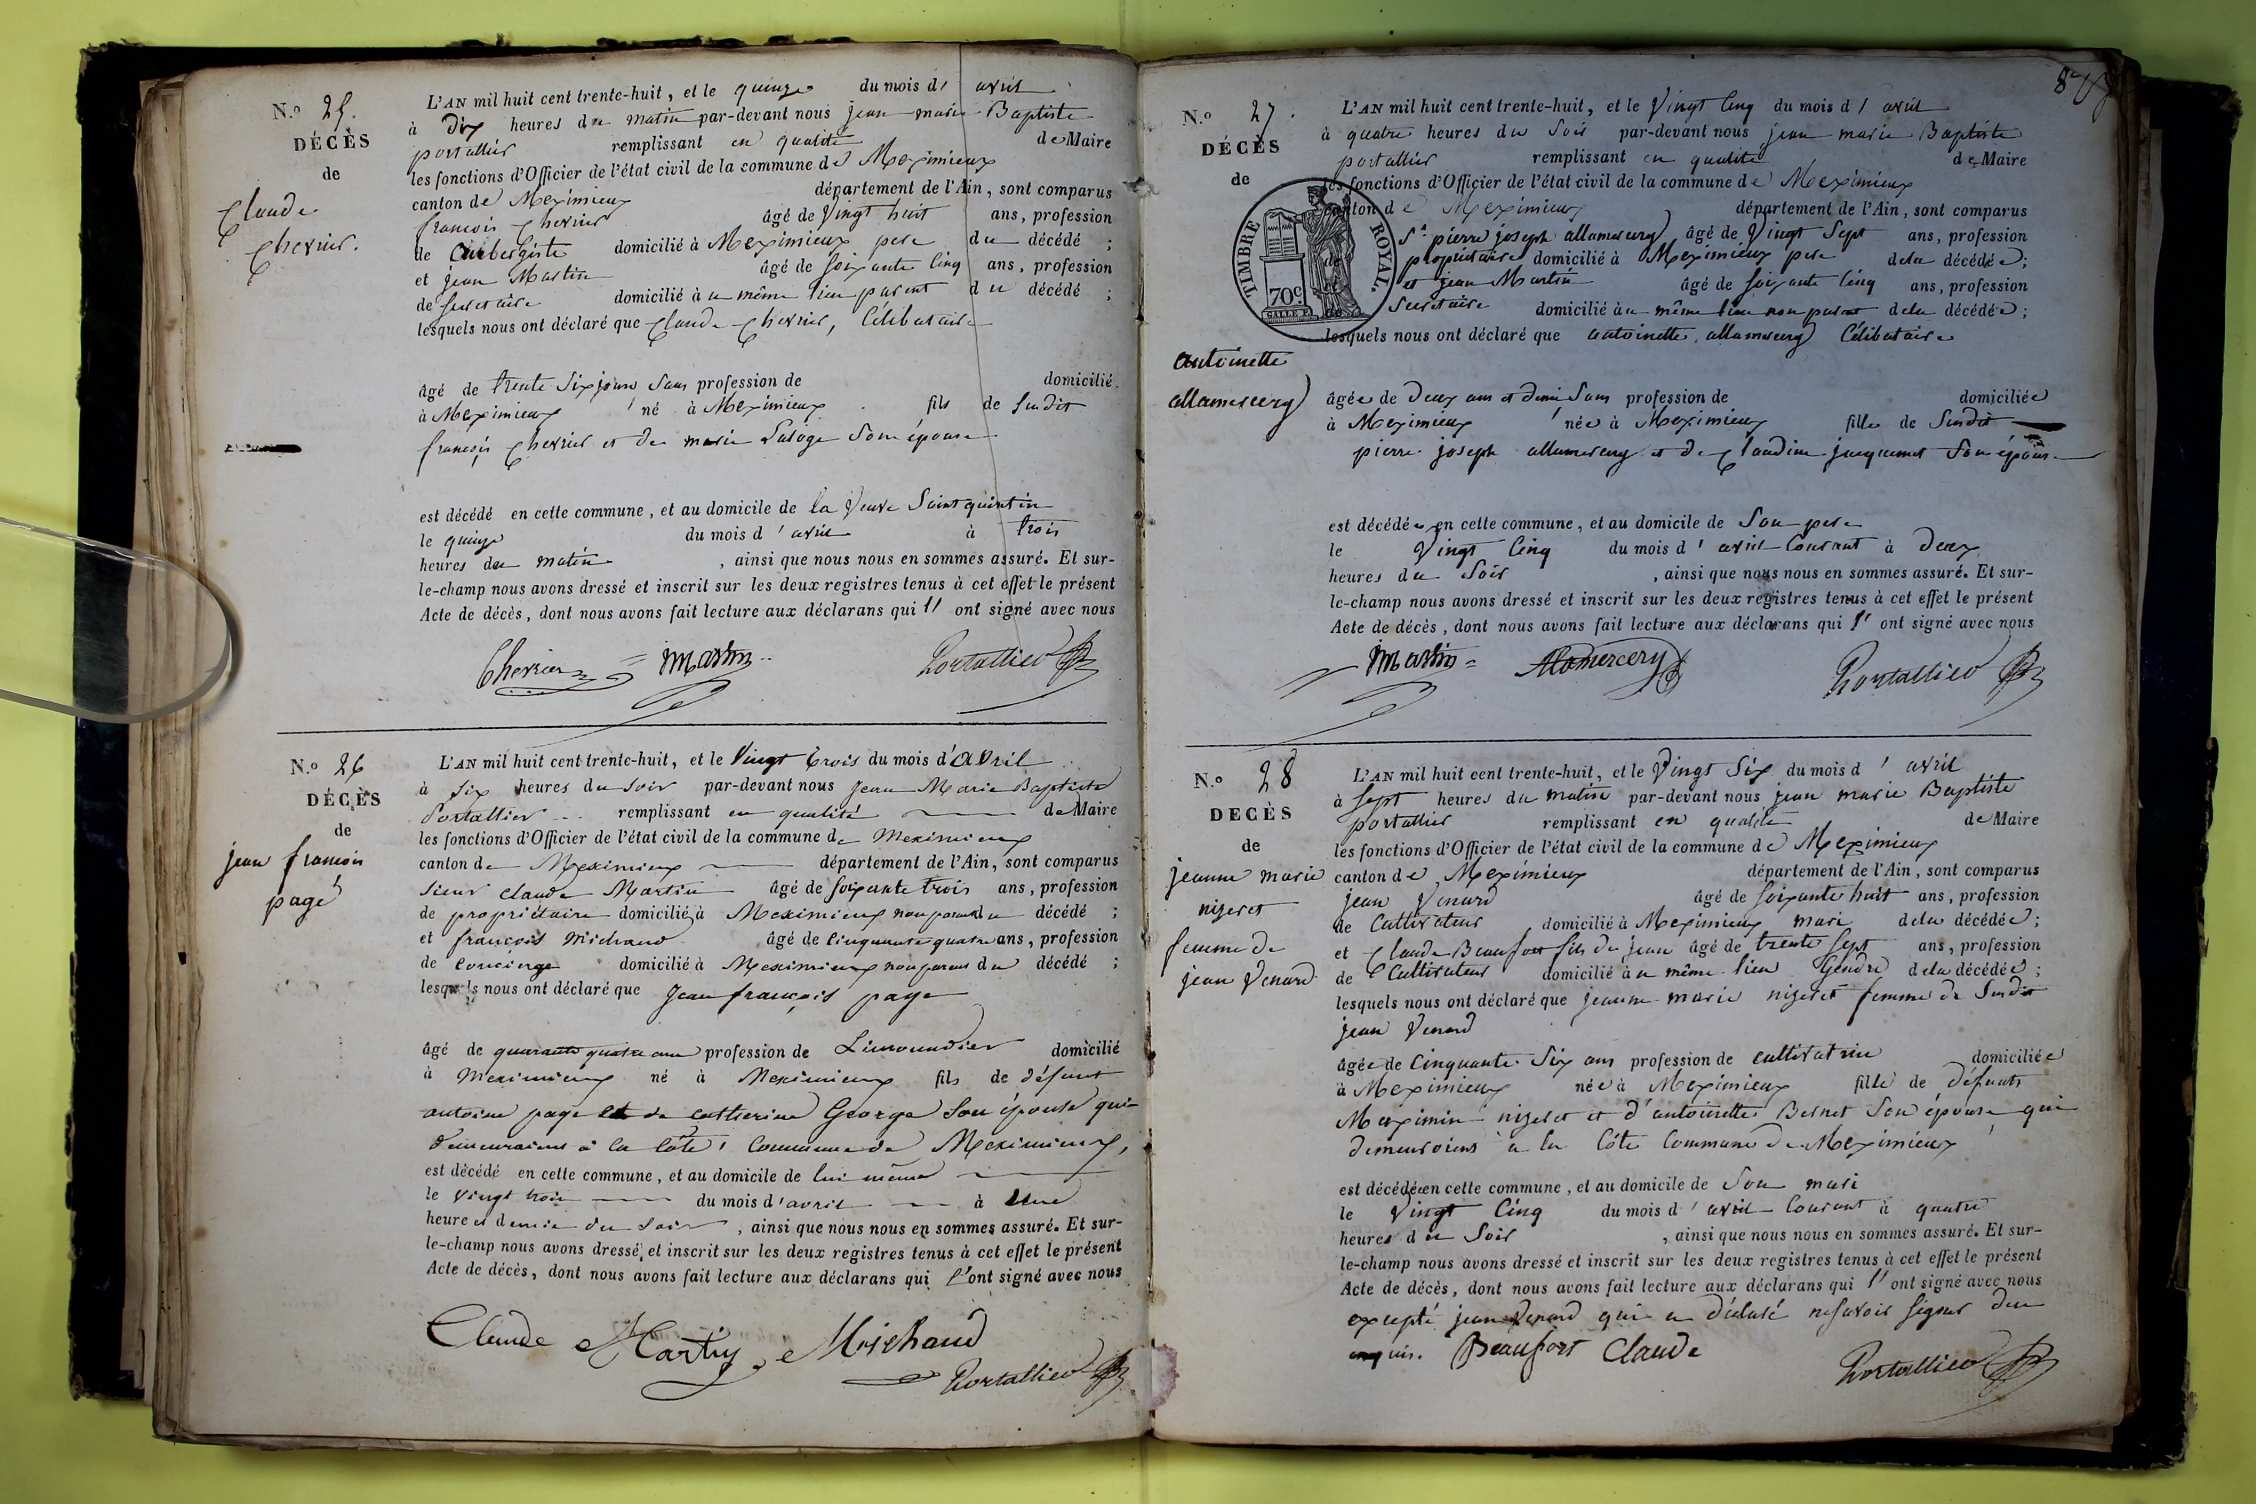 N.º 25.
DÉCÈS
de
Claude
Chevrier.
L'AN mil huit cent trente-huit, et le quinze du mois d'avril
à Dix heures du matin par-devant nous jean marie Baptiste
portallier remplissant en qualité de Maire
les fonctions d'Officier de l'état civil de la commune de Meximieux
canton de Meximieux département de l'Ain, sont comparus
françois Chevrier âgé de Vingt huit ans, profession
de aubergiste domicilié à Meximieux pere du décédé ;
et jean Martin âgé de soixante cinq ans, profession
de secretaire domicilié au même lieu parent du décédé ;
lesquels nous ont déclaré que Claude Chevrier, Célibataire
âgé de trente six jours sans profession de domicilié
à Meximieux né à Meximieux fils de Sudit
françois Chevrier et de marie Son épouse
est décédé en cette commune, et au domicile de la Veuve Saint quintin
le quinze du mois d'avril à trois
heures du matin, ainsi que nous nous en sommes assuré. Et sur-
le-champ nous avons dressé et inscrit sur les deux registres tenus à cet effet le présent
Acte de décès, dont nous avons fait lecture aux déclarans qui l'ont signé avec nous
Chevrier Martin Portallier
N.º 26
DÉCÈS
de
jean françois
page
L'AN mil huit cent trente-huit, et le Vingt trois du mois d'avril
à six heures du soir par-devant nous Jean Marie Baptiste
Portallier remplissant en qualité de Maire
les fonctions d'Officier de l'état civil de la commune de Meximieux
canton de Meximieux département de l'Ain, sont comparus
sieur claude Martin âgé de soixante trois ans, profession
de propriétaire domicilié à Meximieux non parent du décédé ;
et françois Michaud âgé de cinquante quatre ans, profession
de concierge domicilié à Meximieux non parent du décédé ;
lesquels nous ont déclaré que Jean françois page
âgé de quarante quatre ans profession de domicilié
à Meximieux né à Meximieux fils de défunt
antoine page et de catherine George son épouse qui
demeuraient à la côte, commune de Meximieux,
est décédé en cette commune, et au domicile de lui même
le vingt trois du mois d'avril à une
heure et demie du soir, ainsi que nous nous en sommes assuré. Et sur-
le-champ nous avons dressé et inscrit sur les deux registres tenus à cet effet le présent
Acte de décès, dont nous avons fait lecture aux déclarans qui l'ont signé avec nous
Claude Martin Michaud
Portallier
N.º 27.
DÉCÈS
de
antoinette
allamercery
TIMBRE ROYAL.
70c.
L'AN mil huit cent trente-huit, et le Vingt Cinq du mois d'avril
à quatre heures du Soir par-devant nous jean marie Baptiste
portallier remplissant en qualité de Maire
les fonctions d'Officier de l'état civil de la commune de Meximieux
canton de Meximieux département de l'Ain, sont comparus
Sr pierre joseph allamercery âgé de Vingt Sept ans, profession
de propriétaire domicilié à Meximieux pere de la décédée ;
et jean Martin âgé de soixante cinq ans, profession
de Secretaire domicilié au même lieu non parent de la décédée ;
lesquels nous ont déclaré que antoinette allamercery Célibataire
âgée de Deux ans et demi Sans profession de domiciliée
à Meximieux née à Meximieux fille de Sudit
pierre joseph allamercery et de Claudine jacquemet Son épouse
est décédée en cette commune, et au domicile de Son pere
le Vingt Cinq du mois d'avril Courant à Deux
heures du Soir, ainsi que nous nous en sommes assuré. Et sur-
le-champ nous avons dressé et inscrit sur les deux registres tenus à cet effet le présent
Acte de décès, dont nous avons fait lecture aux déclarans qui l'ont signé avec nous
Martin Alamercery Portallier
N.º 28
DECÈS
de
jeanne marie
nizeret
femme de
jean Venard
L'AN mil huit cent trente-huit, et le Vingt Six du mois d'avril
à Sept heures du matin par-devant nous jean marie Baptiste
portallier remplissant en qualité de Maire
les fonctions d'Officier de l'état civil de la commune de Meximieux
canton de Meximieux département de l'Ain, sont comparus
jean Venard âgé de soixante huit ans, profession
de Cultivateur domicilié à Meximieux mari de la décédée ;
et Claude Beaufort fils de jean âgé de trente sept ans, profession
de Cultivateur domicilié au même lieu Gendre de la décédée ;
lesquels nous ont déclaré que jeanne marie nizeret femme de Sudit
jean Venard
âgée de Cinquante Six ans profession de cultivatrice domiciliée
à Meximieux née à Meximieux fille de défunts
Meximin nizeret et d'antoinette Bernet Son épouse qui
demeuroient à la Côte Commune de Meximieux
est décédée en cette commune, et au domicile de Son mari
le Vingt Cinq du mois d'avril Courant à quatre
heures du Soir, ainsi que nous nous en sommes assuré. Et sur-
le-champ nous avons dressé et inscrit sur les deux registres tenus à cet effet le présent
Acte de décès, dont nous avons fait lecture aux déclarans qui l'ont signé avec nous
excepté jean Venard qui a déclaré ne savoir signer de ce
enquis. Beaufort Claude
Portallier